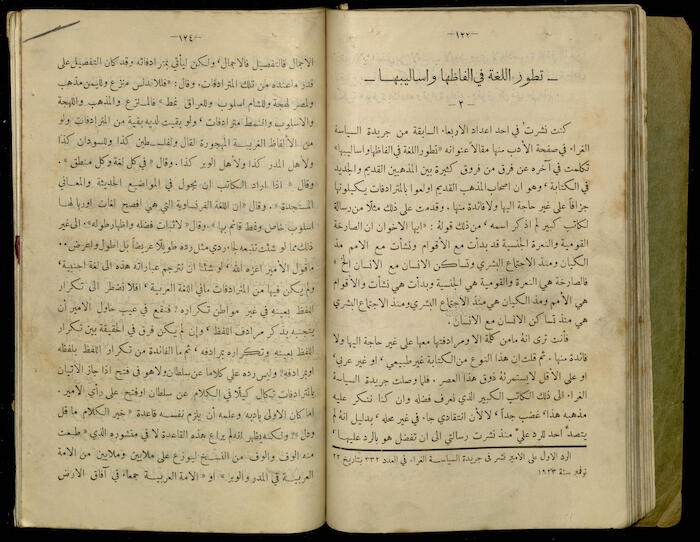 —١٢٢—
— تطور اللغة في الفاظها واساليبها —
— ٢ —
كنت نشرت في احد اعداد الاربعاء السابقة من جريدة السياسة
الغراء في صفحة الأدب منها مقالاً عنوانه «تطور اللغة في الفاظها واساليبها»
تكلمت في آخره عن فرق من فروق كثيرة بين المذهبين القديم والجديد
في الكتابة، وهو ان اصحاب المذهب القديم اولعوا بالمترادفات يكيلونها
جزافاً على غير حاجة اليها ولا فائدة منها. وقدمت على ذلك مثلاً من رسالة
لكاتب كبير لم اذكر اسمه، من ذلك قوله: «ايها الاخوان ان الصارخة
القومية والنعرة الجنسية قد بدأت مع الأقوام ونشأت مع الامم مذ
الكيان ومنذ الاجتماع البشري وتساكن الانسان مع الانسان الخ»
فالصارخة هي النعرة والقومية هي الجنسية وبدأت هي نشأت والأقوام
هي الأمم ومذ الكيان هي منذ الاجتماع البشري ومنذ الاجتماع البشري
هي منذ تساكن الانسان مع الانسان.
فأنت ترى انه ما من كلمة الا ومرادفتها معها على غير حاجة اليها ولا
فائدة منها. ثم قلت ان هذا النوع من الكتابة غير طبيعي، او غير عربي،
او على الأقل لا يستمرئه ذوق هذا العصر. فلما وصلت جريدة السياسة
الغراء الى ذلك الكاتب الكبير الذي نعرف فضله وان كنا ننكر عليه
مذهبه هذا، غضب جداً، لا لأن انتقادي جاء في غير محله، بدليل انه لم
يتصد احد للرد عليّ منذ نشرت رسالتي الى ان تفضل هو بالرد عليها،
الرد الاول على الامير نشر في جريدة السياسة الغراء في العدد ٣٣٢ بتاريخ ٢٢
نوفمبر سنة ١٩٢٣
—١٢٤—
الاجمال فالتفصيل فالاجمال، ولكن ليأتي بمترادفاته وقد كان التفصيل على
قدر ما عنده من تلك المترادفات. وقال: «فللاندلس منزع ولليمن مذهب
ولمصر لهجة وللشام اسلوب وللعراق نمط» فالمنزع والمذهب واللهجة
والاسلوب والنمط مترادفات، ولو بقيت لديه بقية من المترادفات ولو
من الألفاظ الغريبة المهجورة لقال ولفلسطين كذا وللسودان كذا
ولأهل المدر كذا ولأهل الوبر كذا. وقال «في كل لغة وكل منطق».
وقال «اذا اراد الكاتب ان يجول في المواضيع الحديثة والمعاني
المستجدة». وقال «ان اللغة الفرنساوية التي هي افصح لغات اوربا لها
اسلوب خاص ونمط قائم بها». وقال «لاثبات فضله واظهار طوله». الى غير
ذلك مما لو شئت تتبعه لجاء ردي مثل رده طويلاً عريضاً بل اطول واعرض..
ما قول الأمير اعزه الله، لو شئنا ان نترجم عباراته هذه الى لغة اجنبية،
ولم يكن فيها من المترادفات ما في اللغة العربية، أفلا نضطر الى تكرار
اللفظ بعينه في غير مواطن تكراره؟ فنقع في عيب حاول الامير أن
يتجنبه بذكر مرادف اللفظ، وإن لم يكن فرق في الحقيقة بين تكرار
اللفظ بعينه وتكراره بمرادفه، ثم ما الفائدة من تكرار اللفظ بلفظه
او بمرادفه؟ وليس رده علي كلاماً عن سلطان ولا هو في فتح اذا جاز الاتيان
بالمترادفات تتكال كيلاً في الكلام عن سلطان او فتح على رأي الأمير..
اما كان الأولى بأدبه وعلمه أن يلزم نفسه قاعدة «خير الكلام ما قل
ودل»؟ ولكنه يظهر انه لم يراع هذه القاعدة لا في منشوره الذي «طبعت
منه ألوف والوف من النسخ ليوزع على ملايين وملايين من الامة
العربية في المدر والوبر» او «الامة العربية جمعاء في آفاق الارض